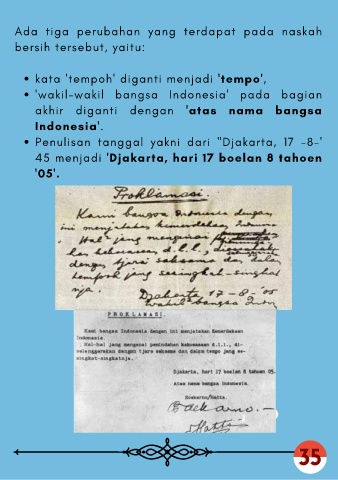 Ada tiga perubahan yang terdapat pada naskah
bersih tersebut, yaitu:
kata 'tempoh' diganti menjadi 'tempo',
'wakil-wakil bangsa Indonesia' pada bagian
akhir diganti dengan 'atas nama bangsa
Indonesia'.
Penulisan tanggal yakni dari "Djakarta, 17 -8-'
45 menjadi 'Djakarta, hari 17 boelan 8 tahoen
'05'.
Proklamasi.
Kami bangsa Indonesia dengan
ini menjatakan kemerdekaan Indonesia.
Hal² jang mengenai
kekoeasaan d.l.l.,
dengan tjara saksama dan dalam
tempoh jang sesingkat-singkat
nja.
Djakarta 17 - 8 - 05
Wakil² bangsa Indon
PROKLAMASI.
Kami bangsa Indonesia dengan ini menjatakan Kemerdekaan
Indonesia.
Hal-hal jang mengenai pemindahan kekoeasaan d.l.l., di-
selenggarakan dengan tjara seksama dan dalam tempo jang se-
singkat-singkatnja.
Djakarta, hari 17 boelan 8 tahoen 05.
Atas nama bangsa Indonesia.
Soekarno/Hatta.
Soekarno.-
Hatta
35